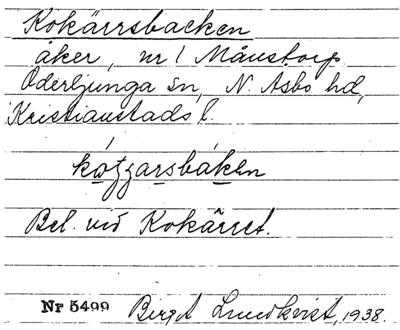 Kokärrsbacken
åker, nr 1 Månstorp
Oderljunga sn, N. Åsbo hd,
Kristianstads l.
Bel. vid Kokärret.
Nr 5499 Birgit Lundkvist, 1938.